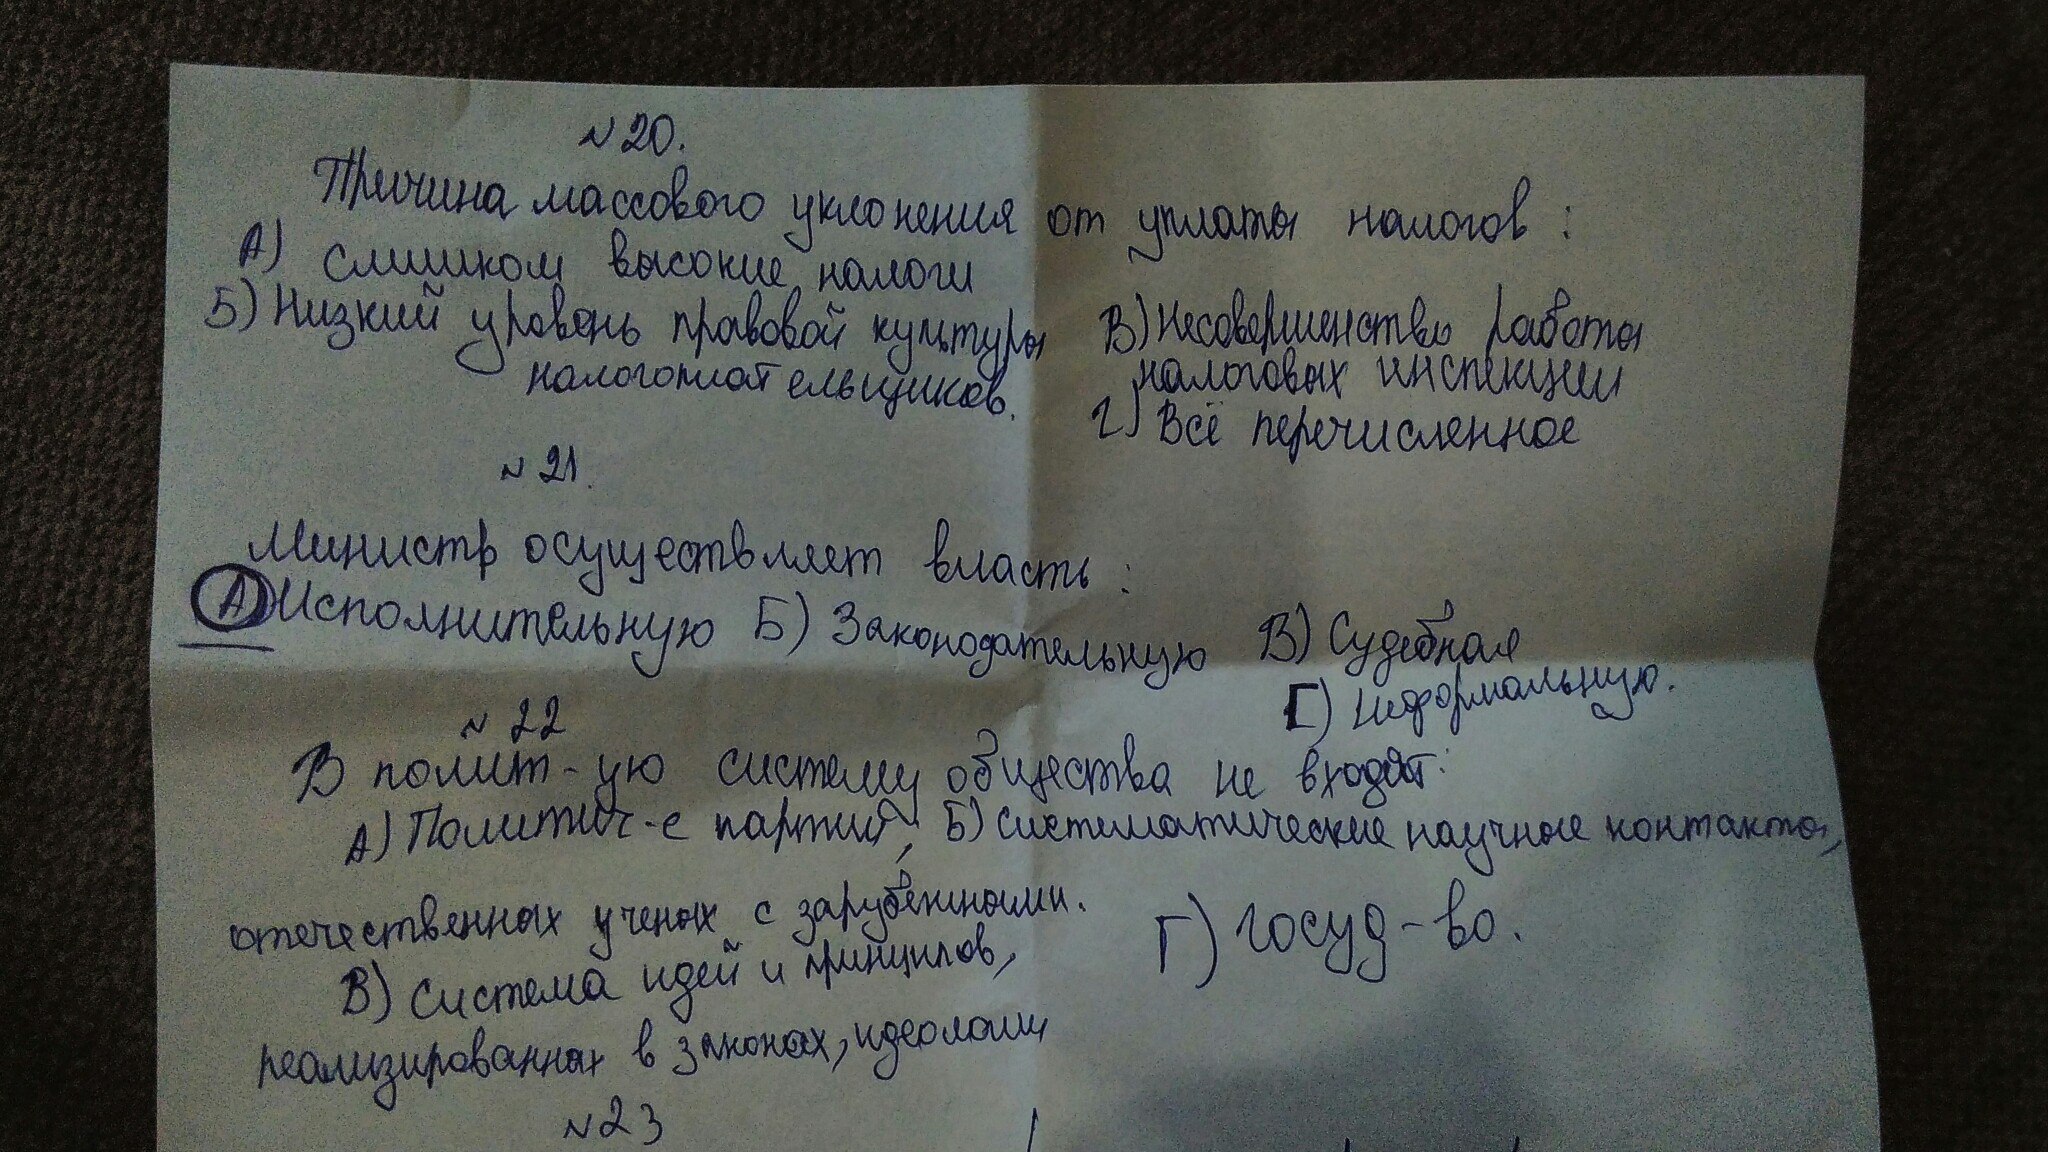 №20.
Причина массового уклонения от уплаты налогов :
А) слишком высокие налоги
Б) Низкий уровень правовой культуры
налогоплательщиков.
В) Несовершенство работы
налоговых инспекции
Г) Всё перечисленное
№21.
Министр осуществляет власть :
А) Исполнительную Б) Законодательную В) Судебная
Г) Неформальную.
№22
В полит-ую систему общества не входят:
А) Политич-е партии, Б) систематические научные контакты,
отечественных ученых с зарубежными.
В) система идей и принципов,
реализированных в законах, идеологии
Г) госуд-во.
№23